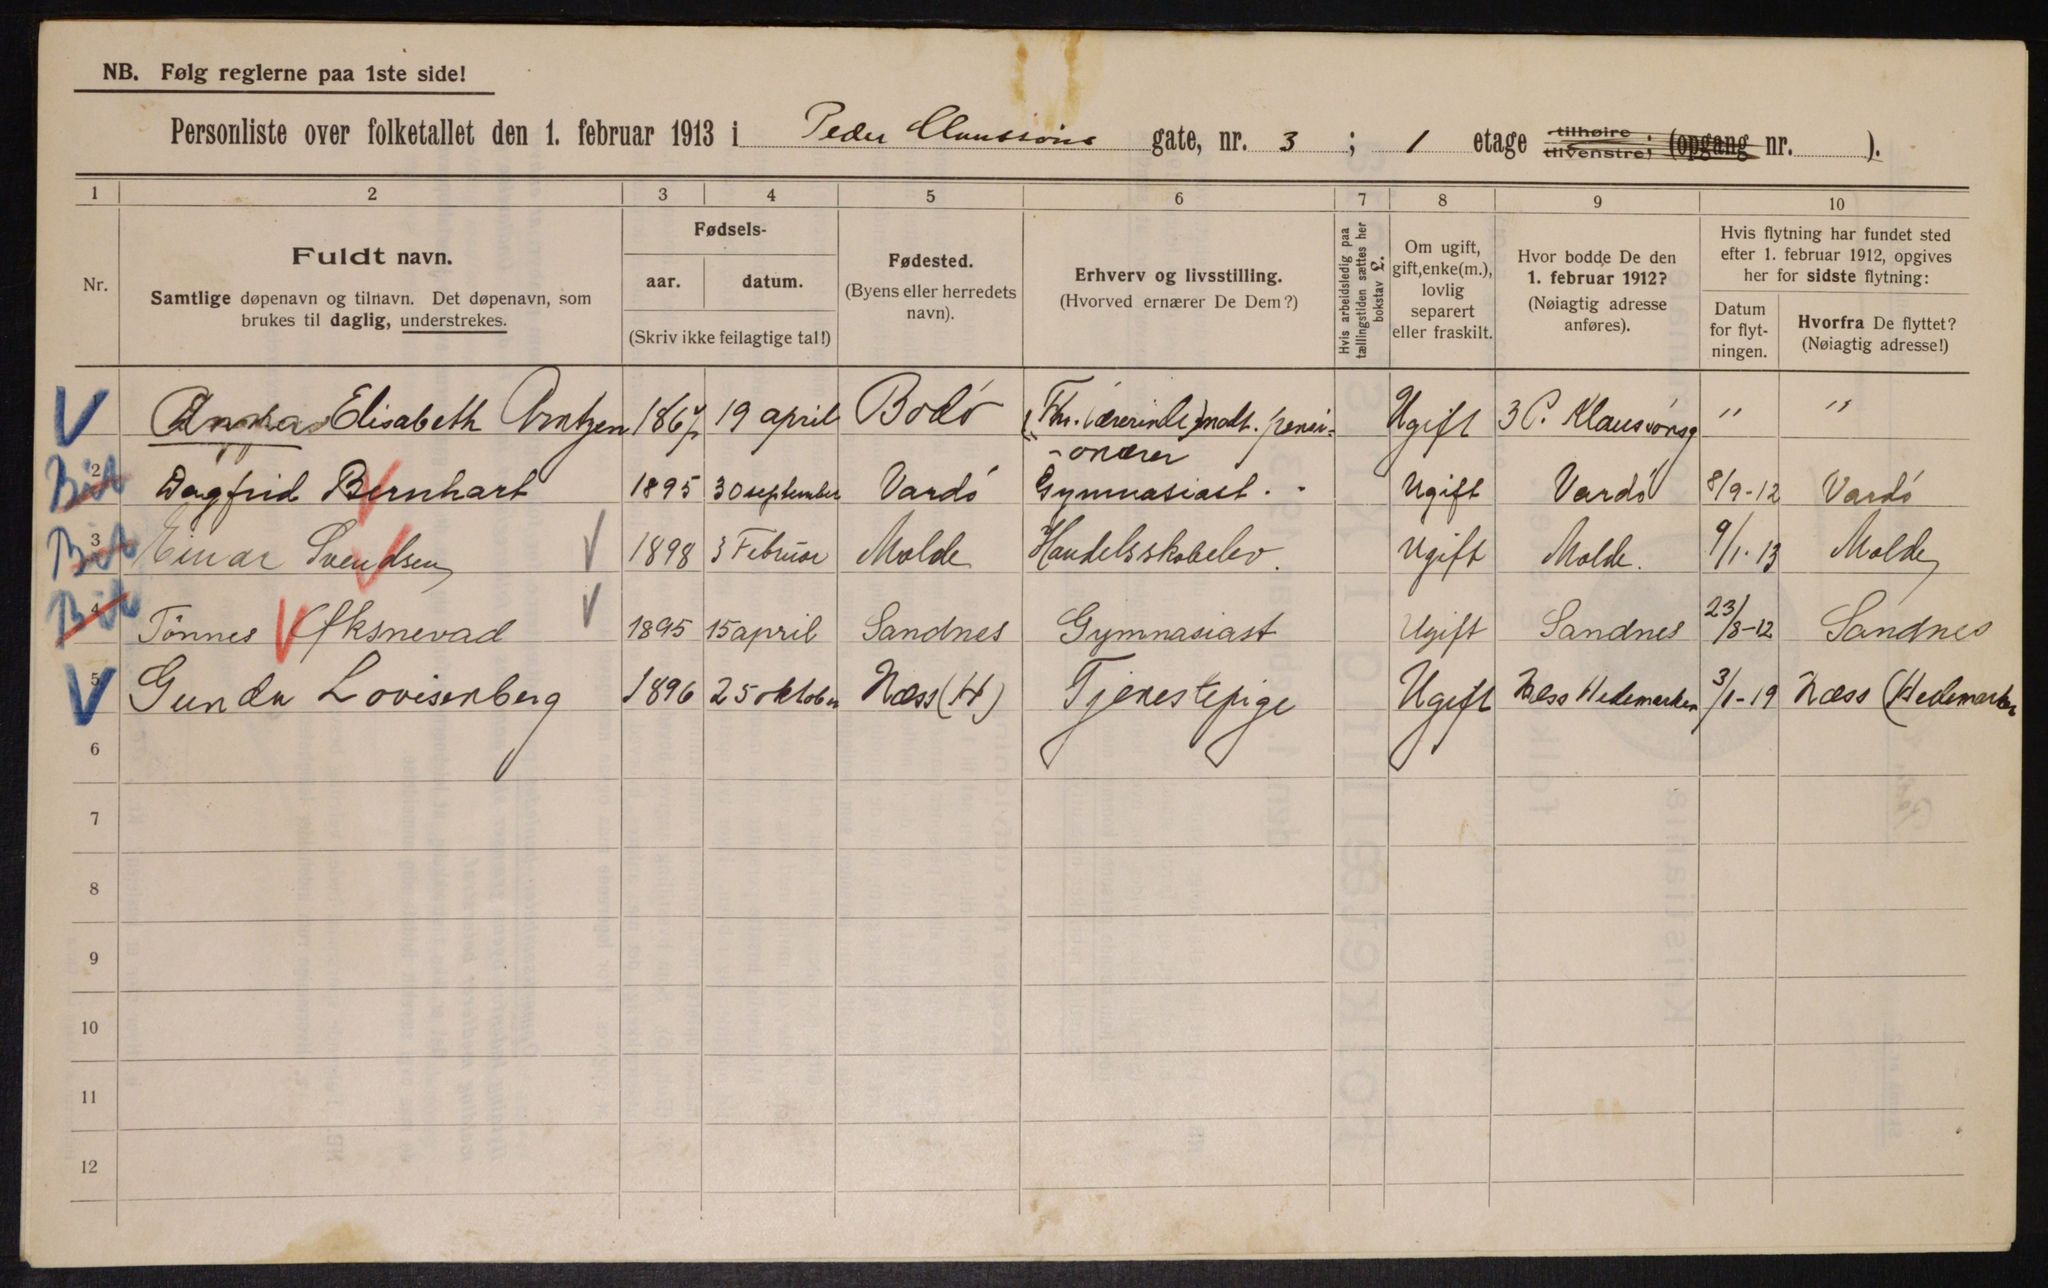 NB. Følg reglerne paa 1ste side!
Personliste over folketallet den 1. februar 1913 i Peder Claussøns gate, nr. 3 ; 1 etage tilhøire tilvenstre, (opgang nr. ).
1 2 3 4 5 6 7 8 9 10
Nr.
Fuldt navn.
Samtlige døpenavn og tilnavn. Det døpenavn, som
brukes til daglig, understrekes.
Fødsels-
aar. datum.
(Skriv ikke feilagtige tal!)
Fødested.
(Byens eller herredets
navn).
Erhverv og livsstilling.
(Hvorved ernærer De Dem?)
Hvis arbeidsledig paa
tællingstiden sættes her
bokstav L.
Om ugift,
gift, enke(m.),
lovlig
separert
eller fraskilt.
Hvor bodde De den
1. februar 1912?
(Nøiagtig adresse
anføres).
Hvis flytning har fundet sted
efter 1. februar 1912, opgives
her for sidste flytning:
Datum
for flyt-
ningen.
Hvorfra De flyttet?
(Nøiagtig adresse!)
Elisabeth Arntzen 1867 19 april Bodö (Fhv. lærerinde) modt. pensi- Ugift 3 P. Klaussønsg " "
-onærer
2 Dagfrid Bernhart 1895 30 september Vardö Gymnasiast. Ugift Vardö 8/9-12 Vardö
3 Einar Svendsen 1898 3 Februar Molde Handelsskoleelev. Ugift Molde. 9/1-13 Molde
4 Tönnes Øksnevad 1895 15 april Sandnes Gymnasiast Ugift Sandnes 23/8-12 Sandnes
5 Gunda Lovisenberg 1896 25 oktober Næss (H) Tjenestepige Ugift Næss Hedemarken 3/1-19 Næss (Hedemarken
6
7
8
9
10
11
12